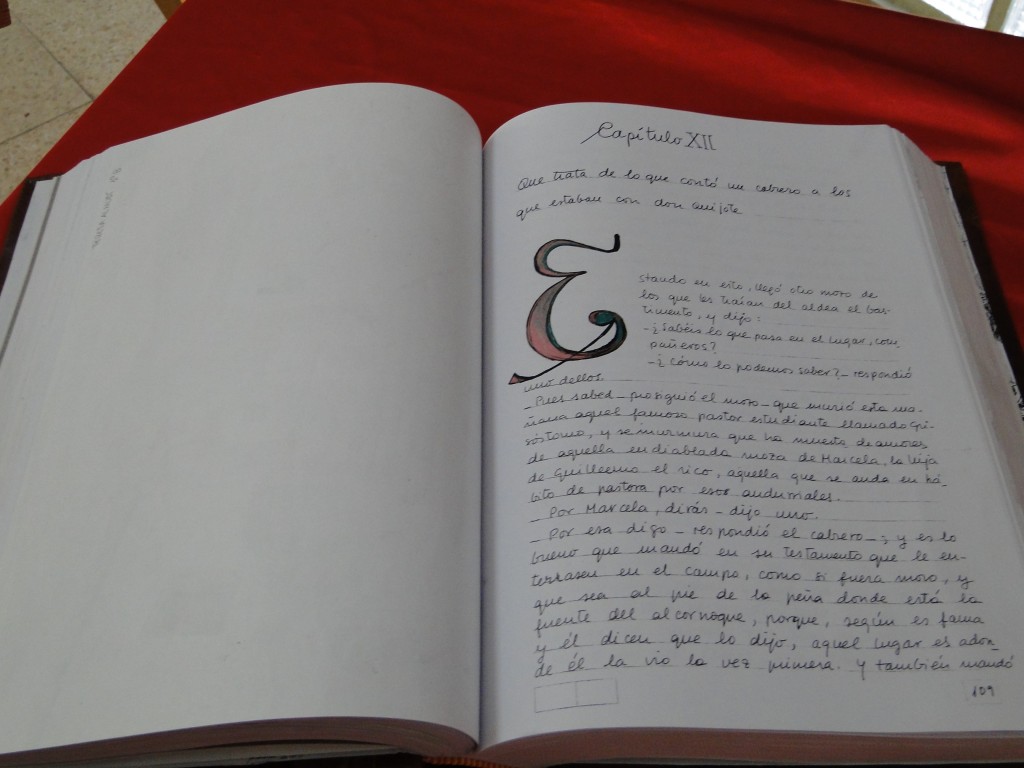 Capítulo XII
Que trata de lo que contó un cabrero a los
que estaban con don Quijote
Estando en esto, llegó otro mozo de
los que les traían del aldea el bas-
timento, y dijo:
-¿Sabéis lo que pasa en el lugar, com
pañeros?
-¿Cómo lo podemos saber?- respondió
uno dellos.
-Pues sabed- prosiguió el mozo- que murió esta ma-
ñana aquel famoso pastor estudiante llamado Gri-
sóstomo, y se murmura que ha muerto de amores
de aquella endiablada moza de Marcela, la hija
de Guillermo el rico, aquella que se anda en há-
bito de pastora por esos andurriales.
-Por Marcela, dirás- dijo uno.
-Por esa digo- respondió el cabrero-; y es lo
bueno que mandó en su testamento que le en-
terrasen en el campo, como si fuera moro, y
que sea al pie de la peña donde está la
fuente del alcornoque, porque, según es fama
y él dicen que lo dijo, aquel lugar es adon-
de él la vio la vez primera. Y también mandó
109